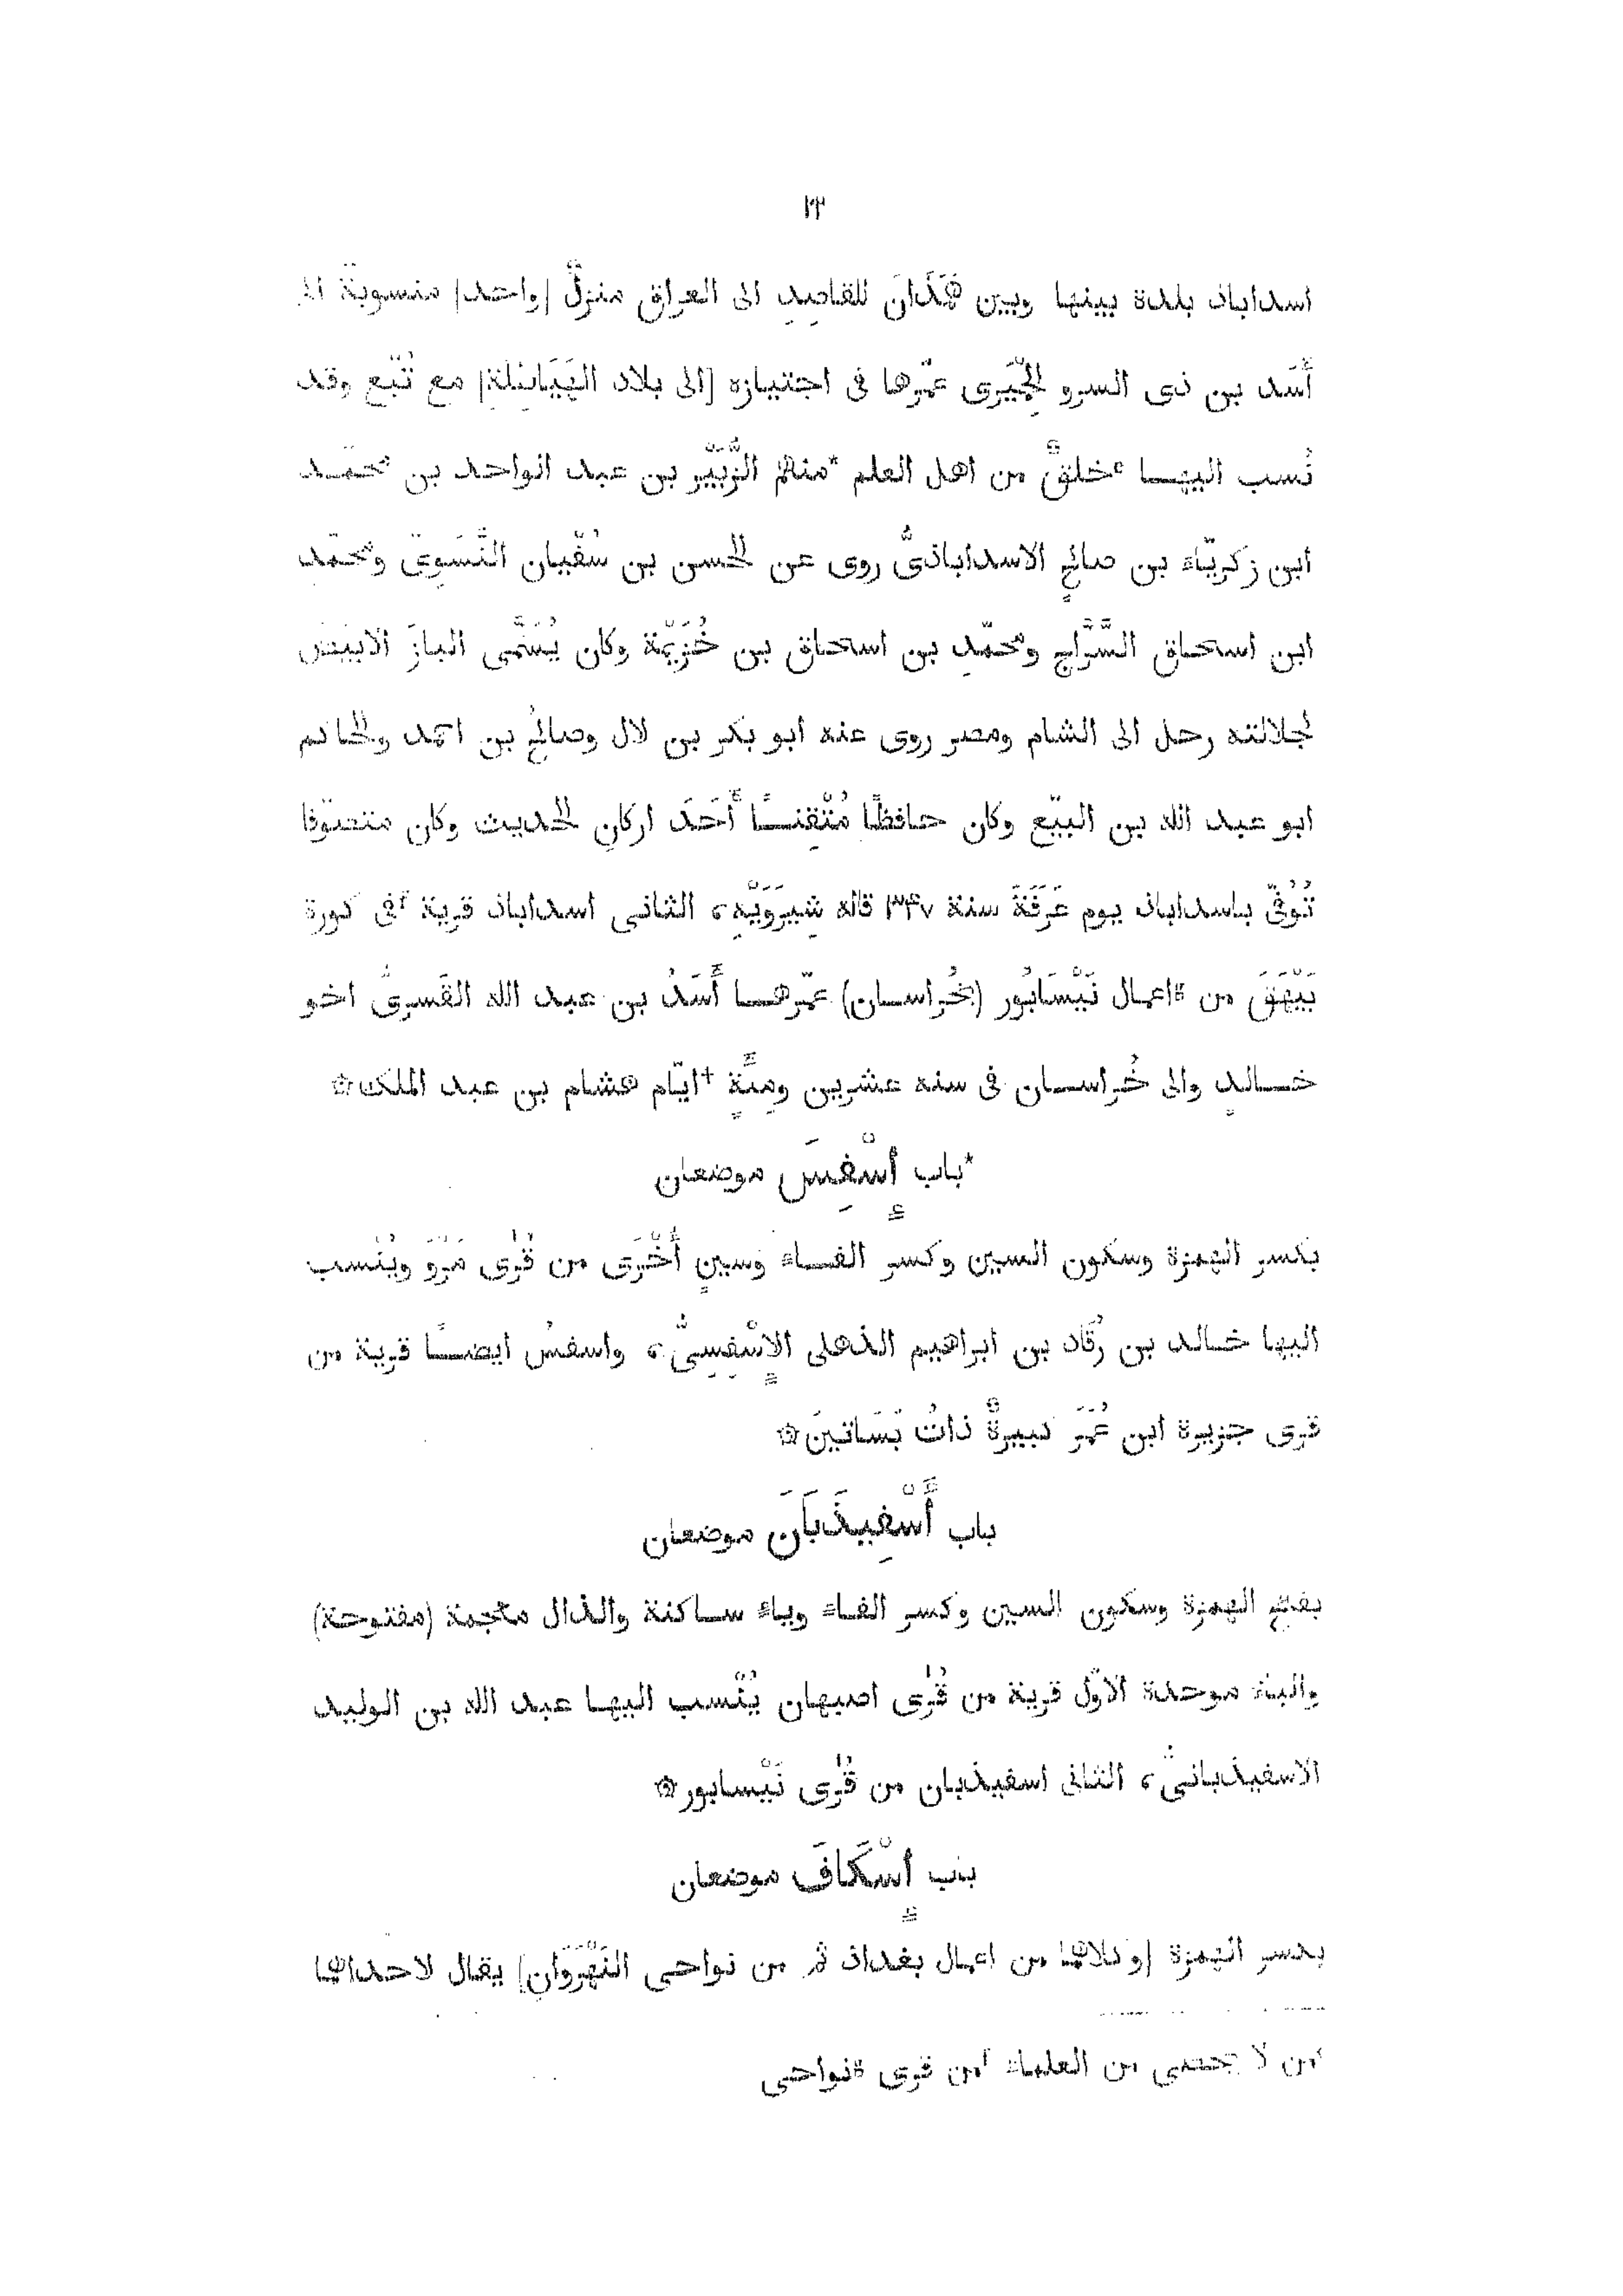 ٢٣
اسداباذ بلدة بينها وبين هَمَذَانَ للقاصِدِ الى العراق منزلٌ [واحد] منسوبة الى
أَسَد بن ذى السرو الحِمْيَرى عمّرها فى اجتيازه [الى بلاد الهَيَاطِلة] مع تُبّع وقد
نُسب اليها خلقٌ من اهل العلم *منهم الزُّبَيْر بن عبد الواحد بن محمّد
ابن زكريّاء بن صالحٍ الاسداباذىُّ روى عن الحسن بن سُفْيان النَّسَوِىّ ومحمّد
ابن اسحاق السَّرَّاج ومحمّدِ بن اسحاق بن خُزَيْمَة وكان يُسَمَّى البازَ الابيض
لجلالته رحل الى الشام ومصر روى عنه ابو بكر بن لال وصالحُ بن احمد والحاكم
ابو عبد الله بن البيّع وكان حافظًا مُتْقِنًا أَحَدَ اركانِ الحديث وكان متصوّفا
تُوُفّىَ باسداباذ يوم عَرَفَةَ سنة ٣۴٧ قاله شِيرَوَيْهِ، الثانى اسداباذ قرية فى كورة
بَيْهَقَ من اعمال نَيْسَابُور (بخُراسان) عمّرها أَسَدُ بن عبد الله القَسرىُّ اخو
خالدٍ والى خُراسان فى سنه عشرين ومِئَةٍ †ايّام هشام بن عبد الملك۞
*باب إِسْفِسَ موضعان
بكسر الهمزة وسكون السين وكسر الفاء وسينٍ أُخْرَى من قُرٰى مَرْوَ ويُنْسب
اليها خالد بن رُقَاد بن ابراهيم الذهلى الإِسْفِسِىُّ، واسفسُ ايضًا قرية من
قرى جزيرة ابن عُمَرَ كبيرةٌ ذاتُ بَسَاتينَ۞
باب أَسْفِيذَبَانَ موضعان
بفتح الهمزة وسكون السين وكسر الفاء وياء ساكنة والذال معجمة (مفتوحة)
والباء موحدة الاوّل قرية من قُرٰى اصبهان يُنْسب اليها عبد الله بن الوليد
الاسفيذبانىُّ، الثانى اسفيذبان من قُرٰى نَيْسابور۞
باب إِسْكَافَ موضعان
بكسر الهمزة [وكلاهما من اعمال بغداذ ثم من نواحى النَهْرَوَانِ] يقال لاحداهما
من لا يحصى من العلماء من قرى نواحى